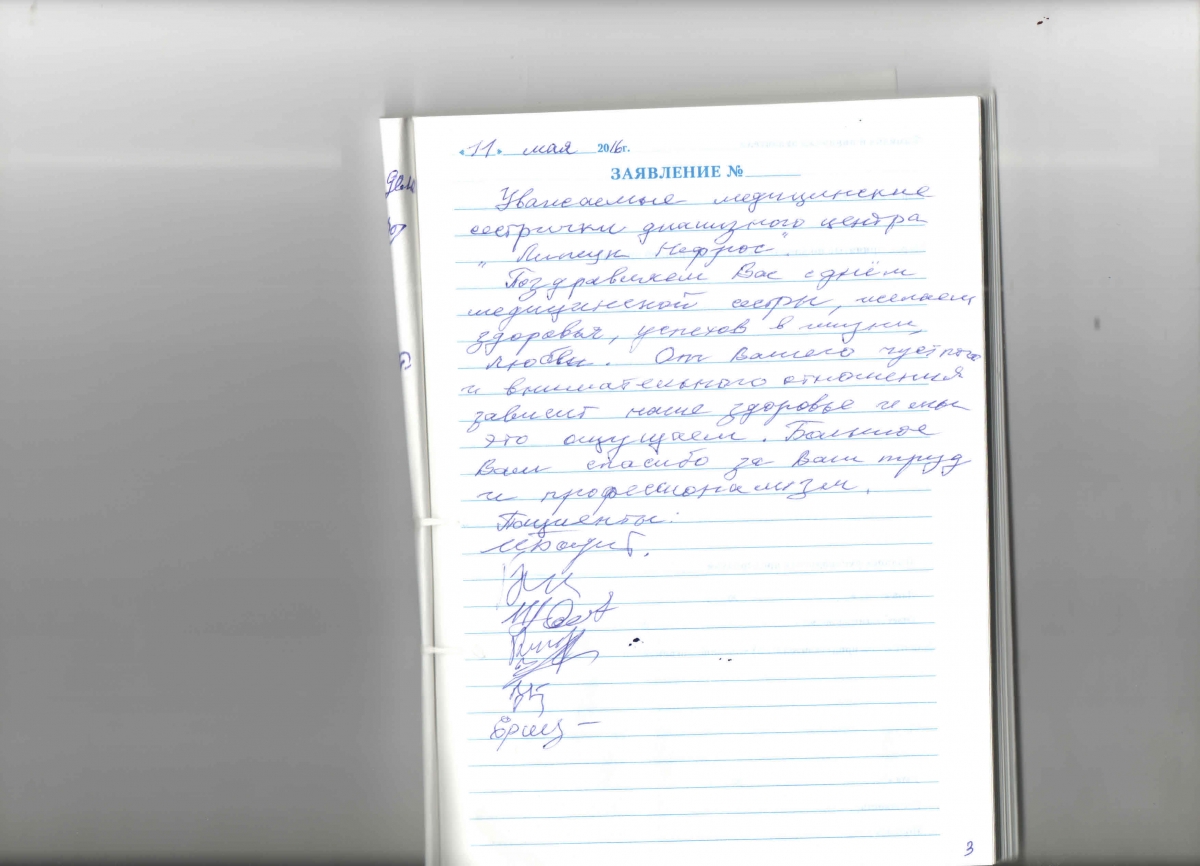 «11» мая 2016г.
ЗАЯВЛЕНИЕ №
Уважаемые медицинские
сестрички диализного центра
"Липецк Нефрос".
Поздравляем Вас с днём
медицинской сестры, желаем
здоровья, успехов в жизни,
любви. От Вашего чуткого
и внимательного отношения
зависит наше здоровье и мы
это ощущаем. Большое
Вам спасибо за Ваш труд
и профессионализм.
Пациенты:
3